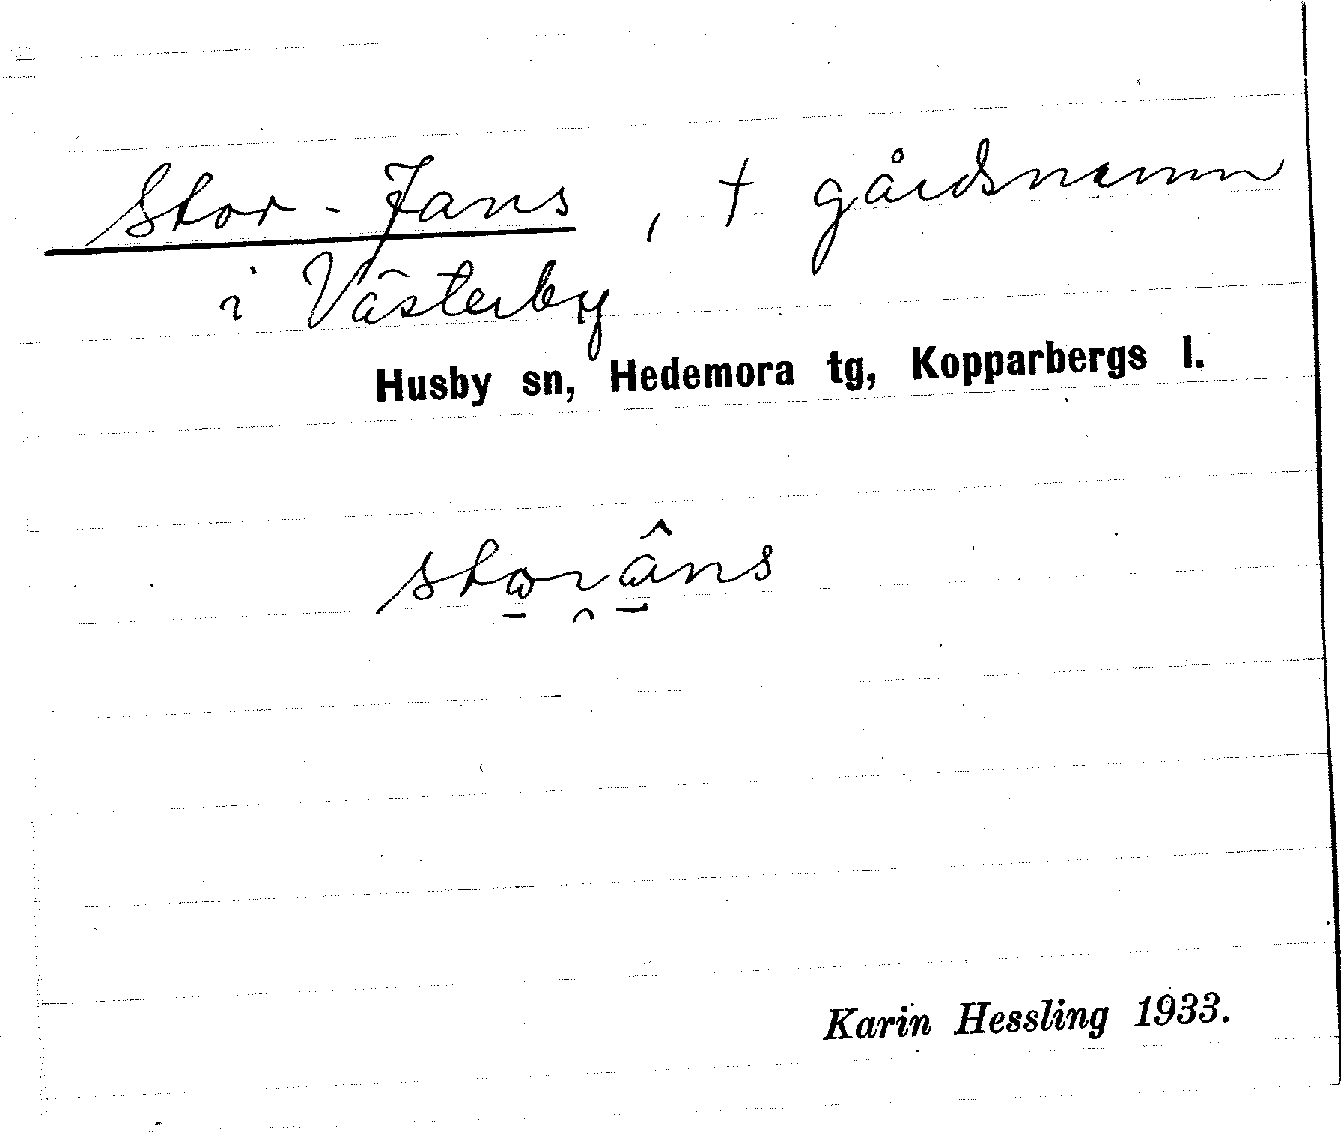 Stor-Jans, † gårdsnamn
i Västerby
Husby sn, Hedemora tg, Kopparbergs l.
Karin Hessling 1933.